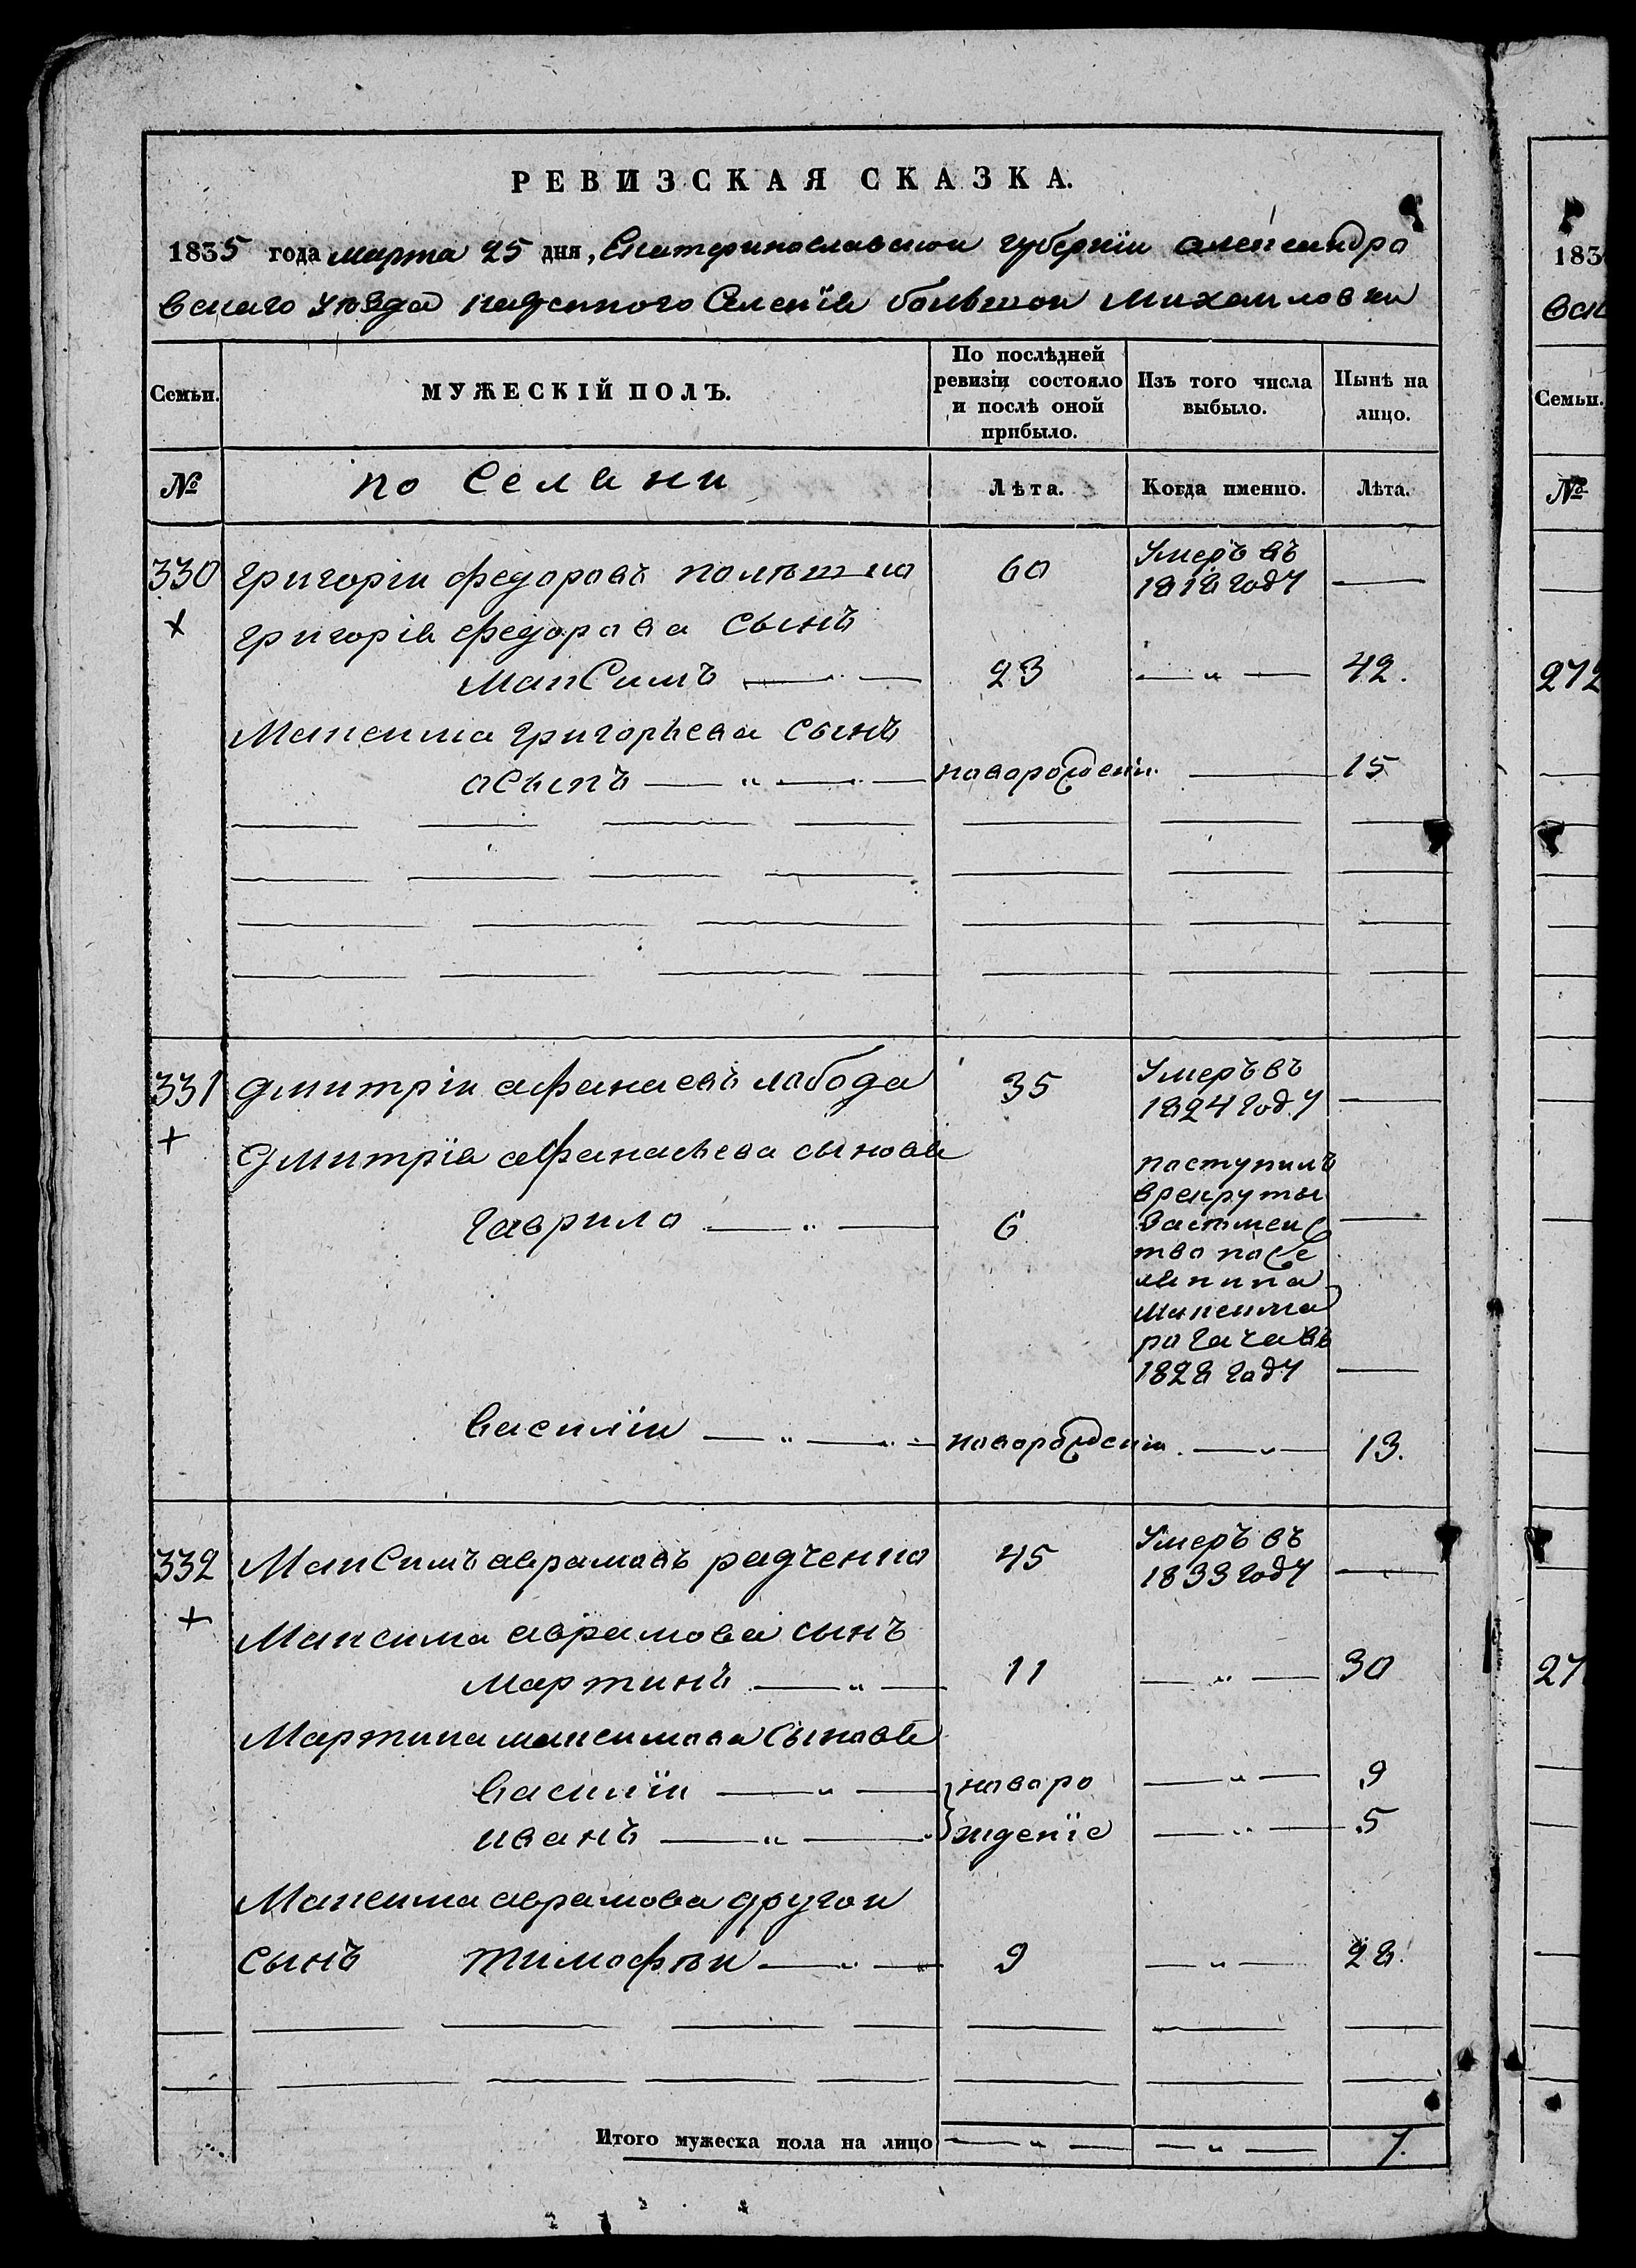 РЕВИЗСКАЯ СКАЗКА.
1835 года марта 25 дня, Екатеринославскои губернїи александро
вскаго уѣзда казенного Селенїя большои михаиловки
Семьи. МУЖЕСКІЙ ПОЛЪ. По послѣдней ревизіи состояло и послѣ оной прибыло. Изъ того числа выбыло. Нынѣ на лицо.
№ Лѣта. Когда именно. Лѣта.
330 григорїи федоровъ 60 Умеръ въ 1818 году —
григорїя федорова сынъ
макСимъ — 23 — „ — 42.
Максима григорьева сынъ
осыпъ — „ — новорожденн. — 15
331 дмитрїи афанаевъ лобода 35 Умеръ въ 1824 году —
дмитрїя афанасьева сыновя
гаврило — „ — 6 поступилъ
врекруты
—
тво посе
лянина
максима
рогача въ
1828 году —
василїи — „ — новорожденн. — „ — 13.
332 МакСимъ аврамовъ радченко 45 Умеръ въ 1833 году —
Максима аврамова сынъ
мартинъ — „ — 11 — „ — 30
Мартина максимова Сыновя
василїи — „ — новоро — „ — 9
иванъ — „ — жденїе — „ — 5
Максима аврамова другои
сынъ тимофѣи — „ — 9 — „ — 28.
Итого мужеска пола на лицо — „ — — „ — 7.
183
вск
Семьи.
№
272
27